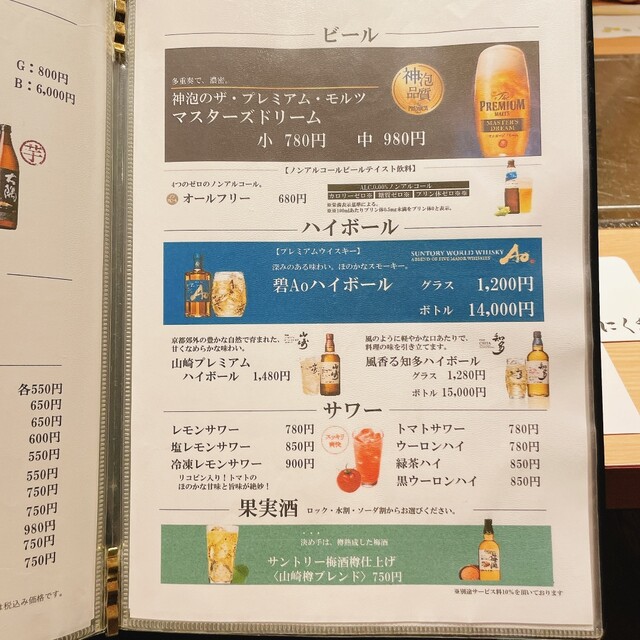 G：800円
B：6,000円
芋
大隅
各550円
650円
650円
600円
550円
550円
750円
750円
980円
750円
750円
は税込み価格です。
ビール
多重奏で、濃密。
神泡のザ・プレミアム・モルツ
マスターズドリーム
小 780円 中 980円
神泡
品質
The
PREMIUM
MALT'S
MASTER'S
DREAM
【ノンアルコールビールテイスト飲料】
4つのゼロのノンアルコール。
オールフリー 680円
ALC.0.00%ノンアルコール
カロリーゼロ※ 糖質ゼロ※ プリン体ゼロ※※
※栄養表示基準による。
※※100mlあたりプリン体0.5mg未満をプリン体0と表示。
ハイボール
【プレミアムウイスキー】
深みのある味わい。ほのかなスモーキー。
碧Aoハイボール
SUNTORY WORLD WHISKY
A BLEND OF FIVE MAJOR WHISKIES
Ao
グラス 1,200円
ボトル 14,000円
京都郊外の豊かな自然で育まれた、
甘くなめらかな味わい。
山崎
山崎プレミアム
ハイボール 1,480円
風のように軽やかな口あたりで、
料理の味を引き立てます。
知多
風香る知多ハイボール
グラス 1,280円
ボトル 15,000円
サワー
レモンサワー 780円
塩レモンサワー 850円
冷凍レモンサワー 900円
リコピン入り！トマトの
ほのかな甘味と旨味が絶妙！
スッキリ
爽快
トマトサワー 780円
ウーロンハイ 780円
緑茶ハイ 850円
黒ウーロンハイ 850円
果実酒 ロック・水割・ソーダ割からお選びください。
決め手は、樽熟成した梅酒
サントリー梅酒樽仕上げ
〈山崎樽ブレンド〉750円
※別途サービス料10%を頂いております
にく